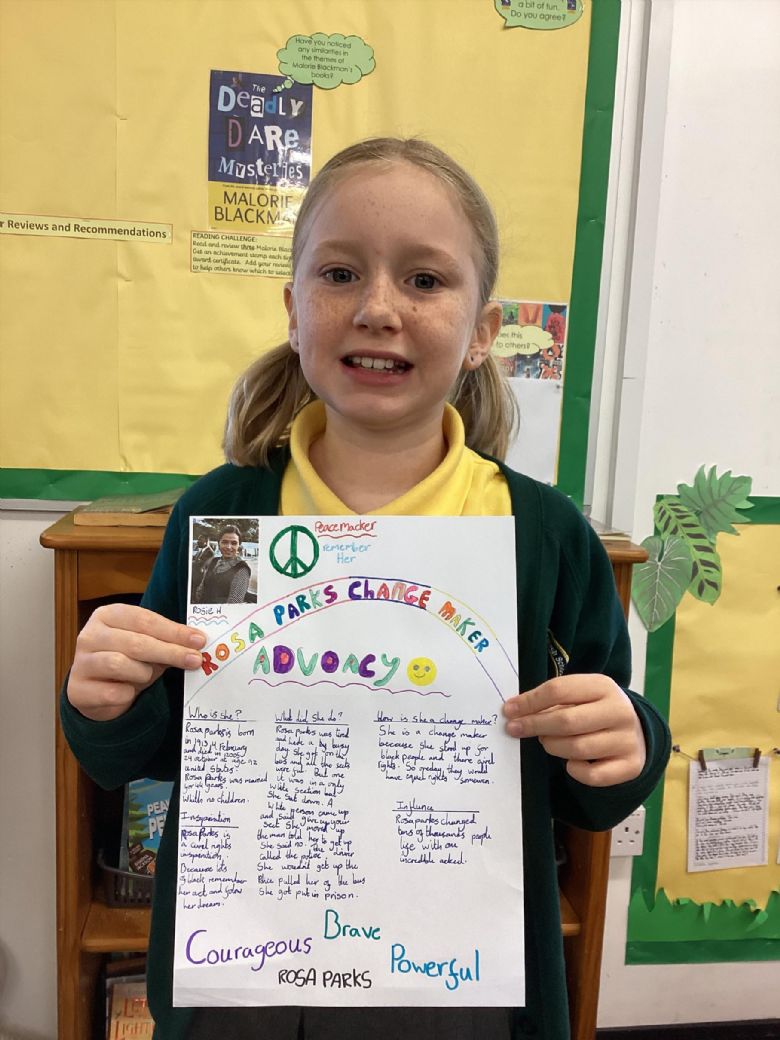 a bit of fun.
Do you agree?
Have you noticed
any similarities in
the themes of
Malorie Blackman's
books?
The
Deadly
Dare
Mysteries
MALORIE
BLACKMAN
r Reviews and Recommendations
READING CHALLENGE:
Read and review three Malorie
Get an achievement stamp each
award certificate. Add your review
to help others know which to select
es this
to others?
Peacemacker
remember
Her
Rosie H
ROSA PARKS CHANGE MAKER
ADVOACY
Who is she?
Rosa parks is born
in 1913, 4 February
and died in 2005
24 october at age 92
united states.
Rosa Parks was married
for years.
Whith no children.
Inspiration
Rosa Parks is
a civel rights
inspiration.
Because lots
of black remember
her act and follow
her dream.
What did she do?
Rosa parks was tired
and had a by busy
day she got on the
bus and all the seats
were full. But one
it was in a only
white section but
she sat down. A
white person came up
and said give up your
seat she moved up
the man told her to get up
She said no. the driver
called the police
She wouldnt get up the
Police pulled her of the bus
She got put in prison.
How is she a change maker?
She is a change maker
because she stood up for
black people and there civel
rights. So oneday they would
have equal rights
Influnce
Rosa parks changed
tens of thousands people
life with one
incredible acked.
Courageous
Brave
Powerful
ROSA PARKS